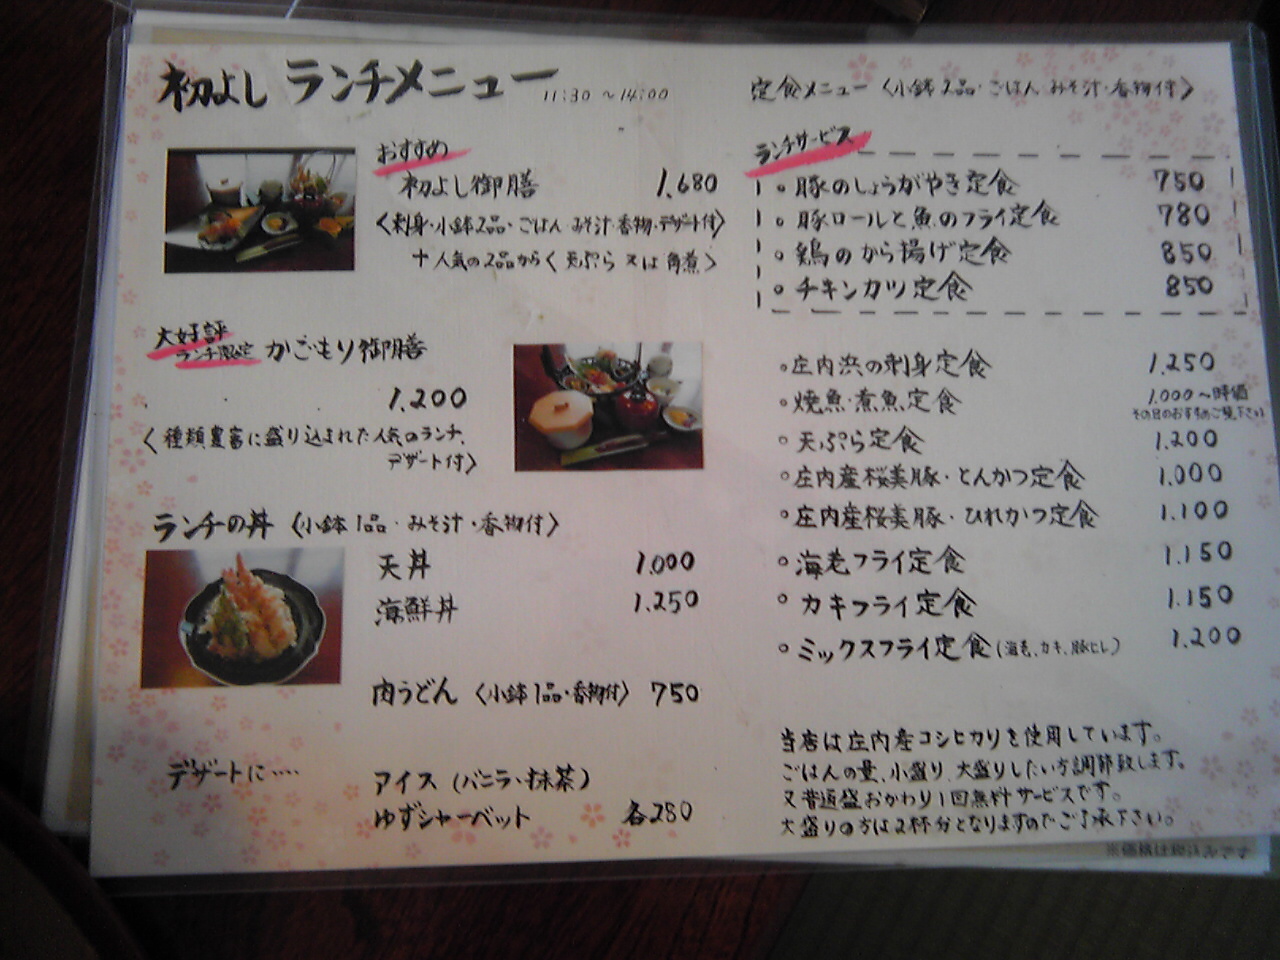 初よし ランチメニュー 11:30 ~14:00
おすすめ
初よし御膳 1.680
〈刺身・小鉢2品・ごはん みそ汁・香物・デザート付〉
＋人気の2品から〈天ぷら 又は 角煮〉
大好評
ランチ限定 かごもり御膳
1.200
〈種類豊富に盛り込まれた人気のランチ、
デザート付〉
ランチの丼 〈小鉢1品・みそ汁・香物付〉
天丼 1.000
海鮮丼 1.250
肉うどん 〈小鉢1品・香物付〉 750
デザートに‥‥ アイス (バニラ・抹茶)
ゆずシャーベット 各280
定食メニュー 〈小鉢2品・ごはん みそ汁・香物付〉
ランチサービス
○豚のしょうがやき定食 750
○豚ロールと魚のフライ定食 780
○鶏のから揚げ定食 850
○チキンカツ定食 850
○庄内浜の刺身定食 1.250
○焼魚・煮魚定食 1.000～時価
その日のおすすめご覧下さい
○天ぷら定食 1.200
○庄内産桜美豚・とんかつ定食 1.000
○庄内産桜美豚・ひれかつ定食 1.100
○海老フライ定食 1.150
○カキフライ定食 1.150
○ミックスフライ定食(海老、カキ、豚ヒレ) 1.200
当店は庄内産コシヒカリを使用しています。
ごはんの量、小盛り、大盛りしたい方調節致します。
又普通盛おかわり1回無料サービスです。
大盛りの方は2杯分となりますのでご了承下さい。
※価格は税込みです